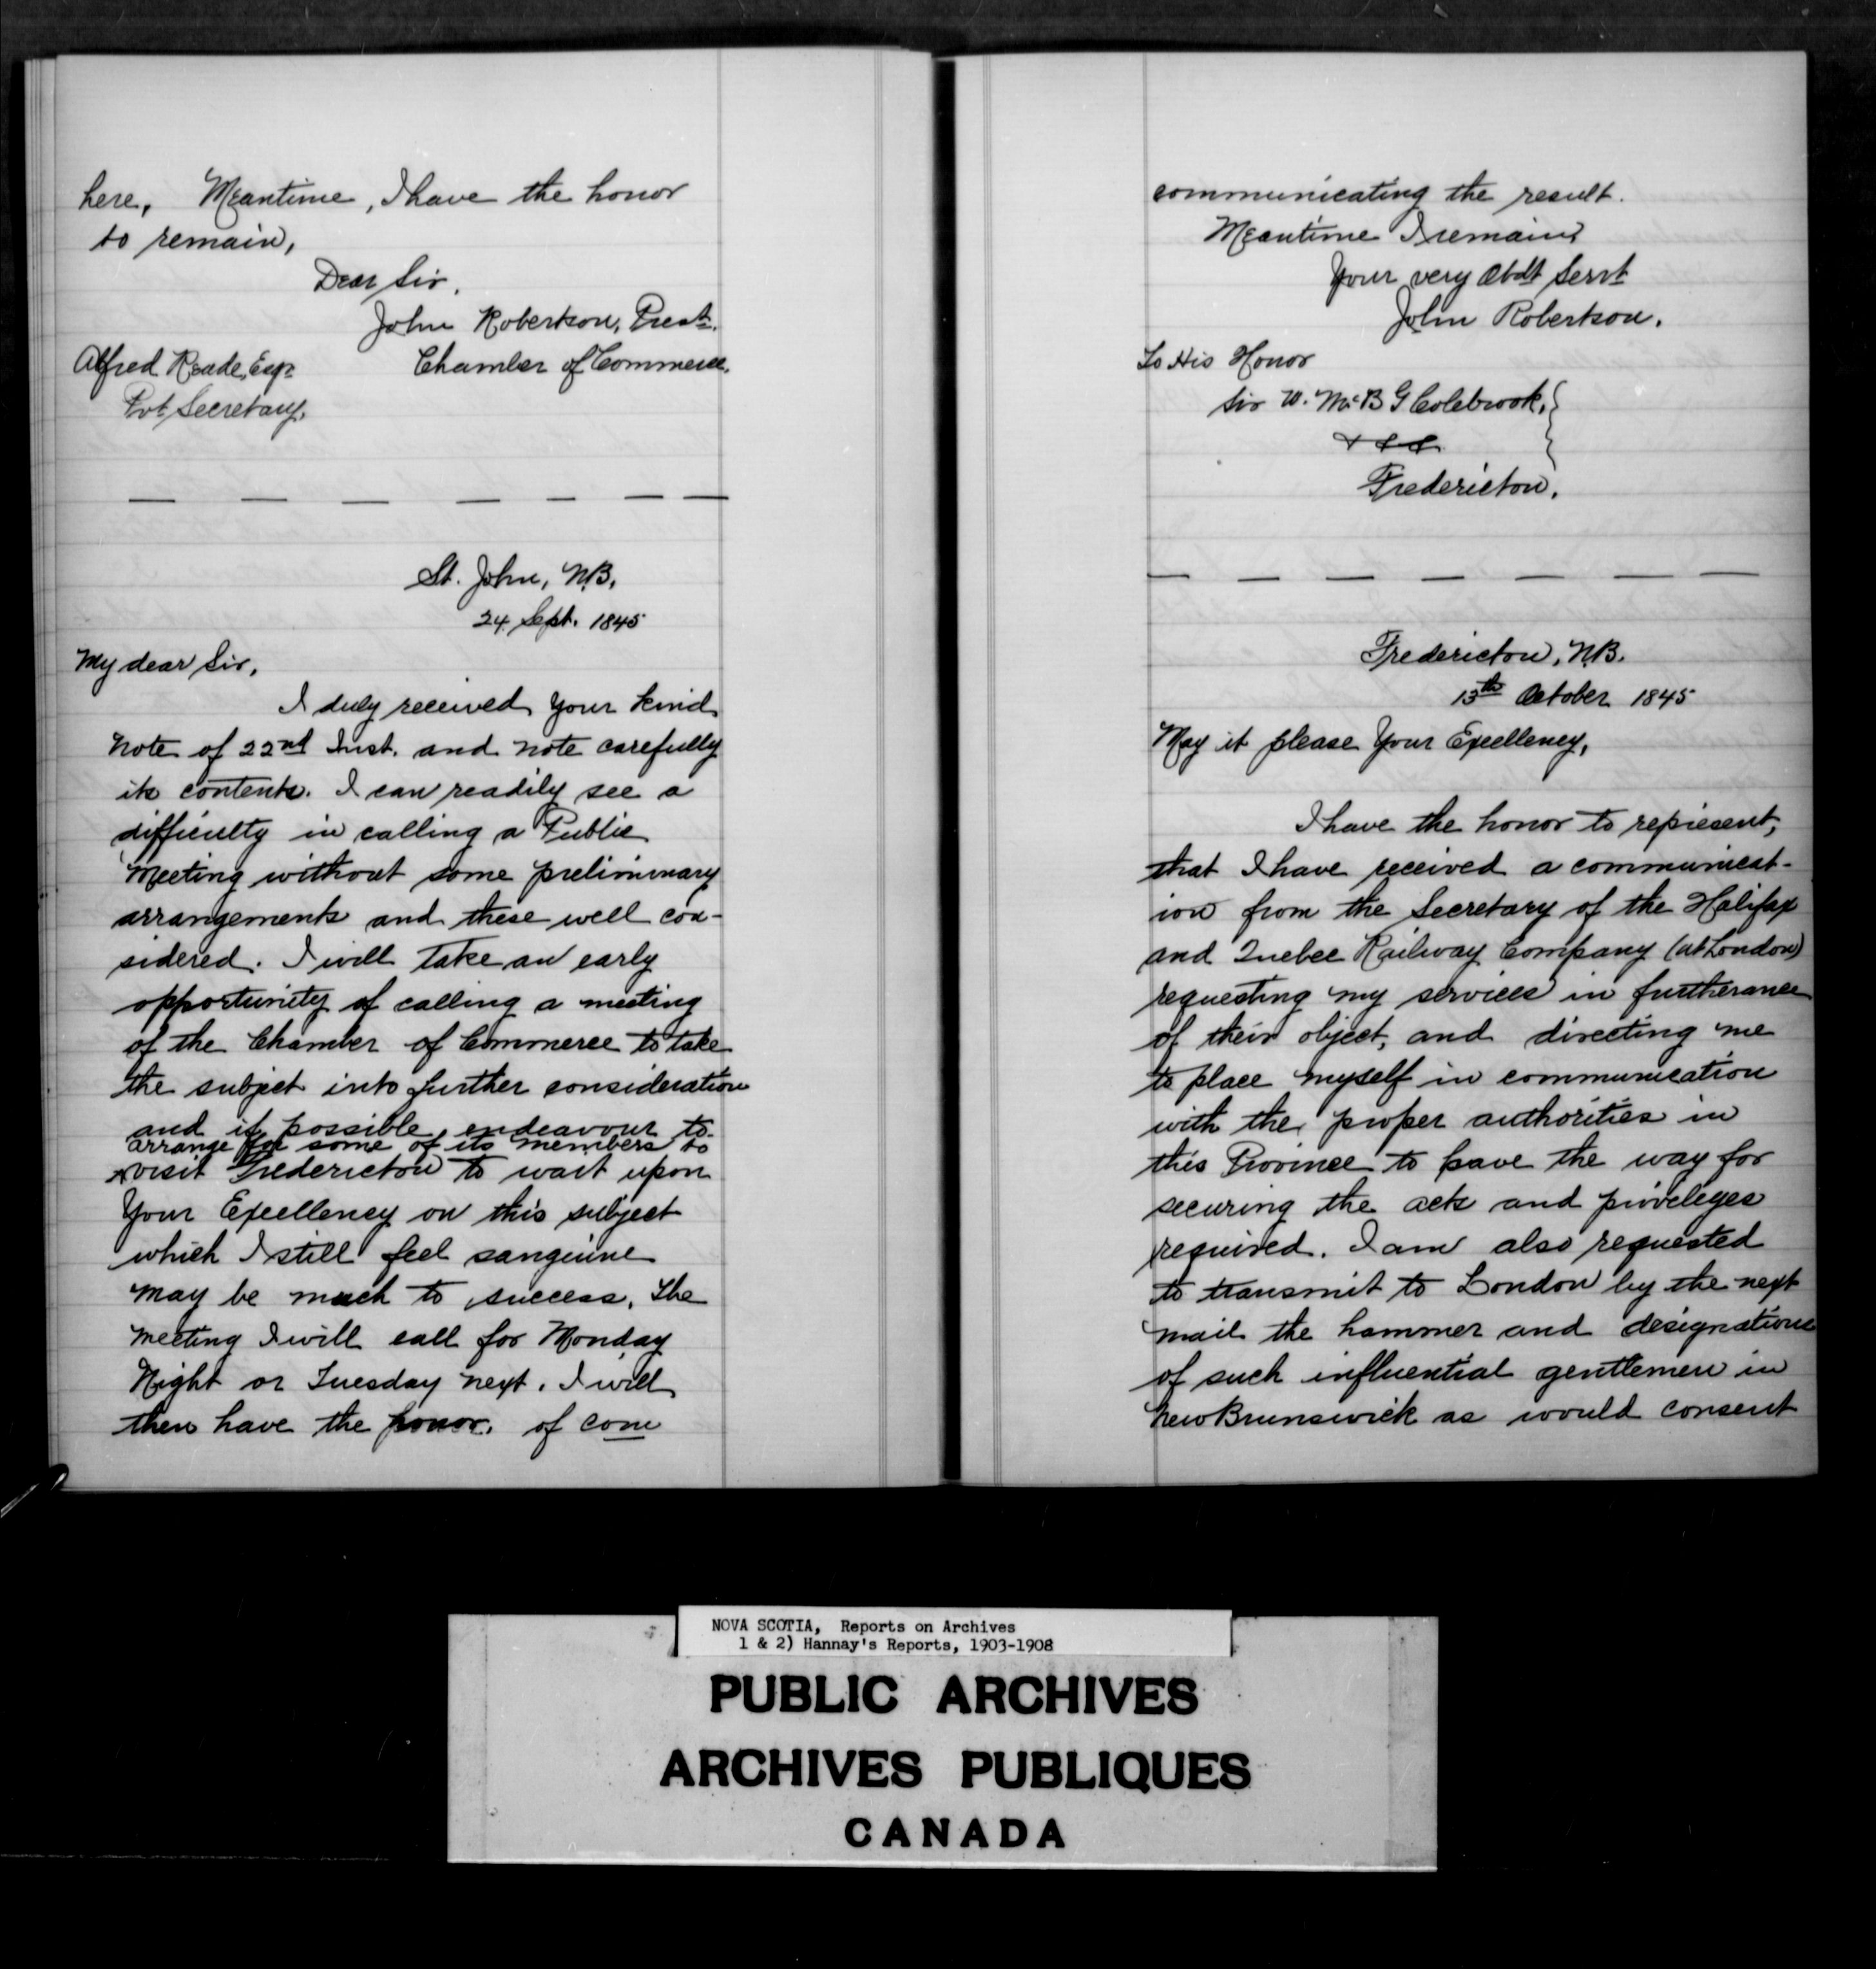 here, Meantime, I have the honor
to remain,
Dear Sir,
John Robertson, Prest.
Alfred Reade, Esqr Chamber of Commerce.
Pvt Secretary.
St. John, N.B.,
24 Sept. 1845
My dear Sir,
I duly received your kind
note of 22nd Inst. and note carefully
its contents. I can readily see a
difficulty in calling a Public
Meeting without some preliminary
arrangements and these well con-
sidered. I will take an early
opportunity of calling a meeting
of the Chamber of Commerce to take
the subject into further consideration
and if possible endeavour to
arrange for some of its members to
visit Fredericton to wait upon
Your Excellency on this subject
which I still feel sanguine
may be much to success. The
meeting I will call for Monday
Night or Tuesday next. I will
then have the honor, of com
communicating the result.
Meantime I remain
Your very Obdt Servt
John Robertson.
To His Honor
Sir W. McB G Colebrook,
& & &
Fredericton.
Fredericton, N.B.
13th October 1845
May it please Your Excellency,
I have the honor to represent,
that I have received a communicat-
ion from the Secretary of the Halifax
and Quebec Railway Company (at London)
requesting my services in furtherance
of their object, and directing me
to place myself in communication
with the proper authorities in
this Province to pave the way for
securing the acts and priveleges
required. I am also requested
to transmit to London by the next
mail the hammer and designations
of such influential gentlemen in
New Brunswick as would consent
NOVA SCOTIA, Reports on Archives
1 & 2) Hannay's Reports, 1903-1908
PUBLIC ARCHIVES
ARCHIVES PUBLIQUES
CANADA